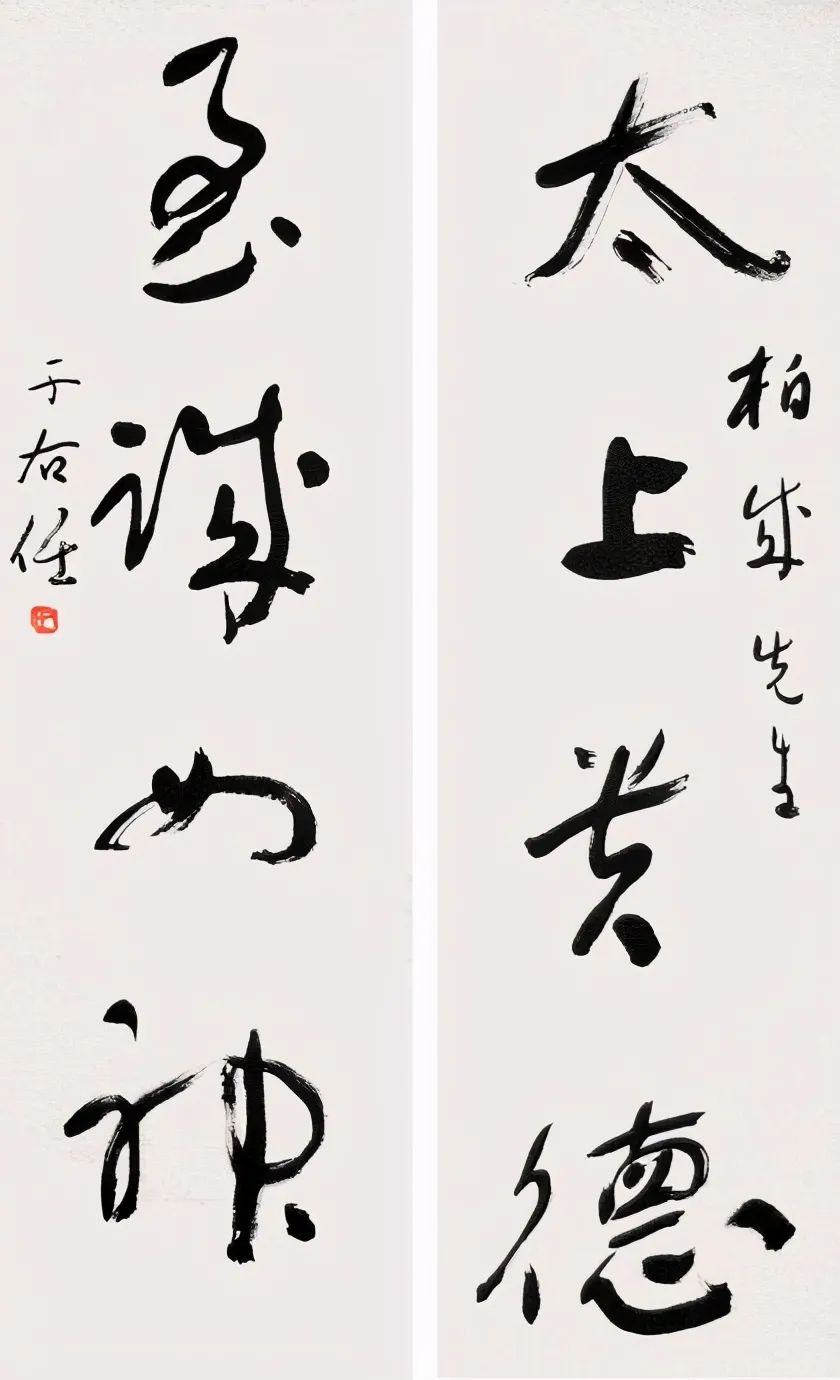 太上贵德
柏成先生
至诚如神
于右任